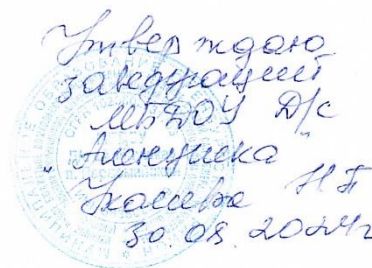 Утверждаю
заведующий
МБДОУ Д/с
"Аленушка"
Н.П.
30.08.2024г